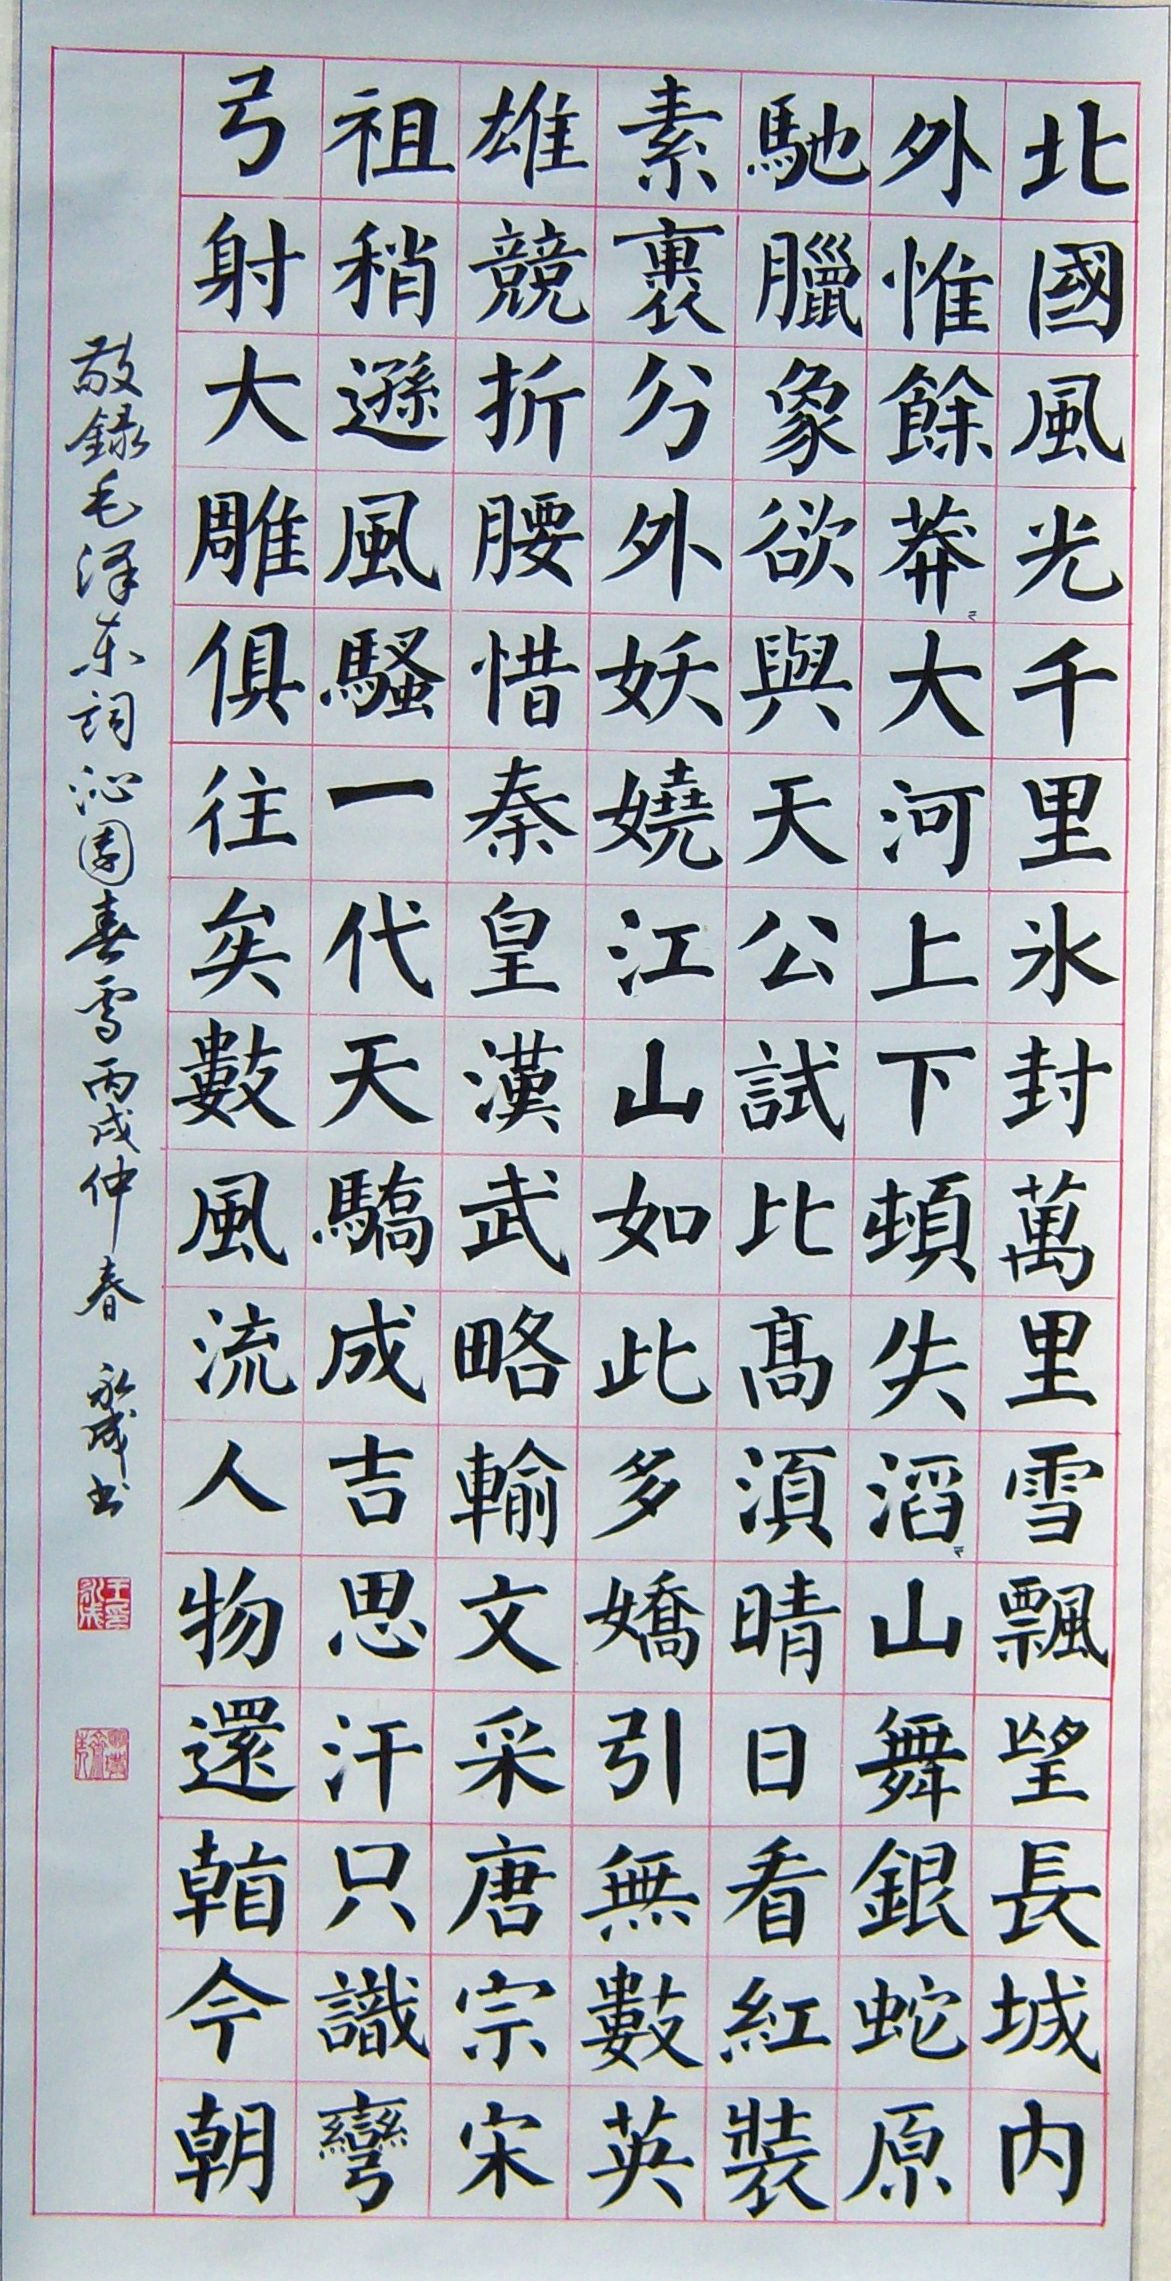 北國風光千里氷封萬里雪飄望長城内
外惟餘莽〻大河上下頓失滔〻山舞銀蛇原
馳臘象欲與天公試比髙須晴日看紅裝
素裹分外妖嬈江山如此多嬌引無數英
雄競折腰惜秦皇漢武略輸文采唐宗宋
祖稍遜風騷一代天驕成吉思汗只識彎
弓射大雕俱往矣數風流人物還看今朝
敬録毛泽东詞沁園春雪丙戌仲春 永成书
王永成印